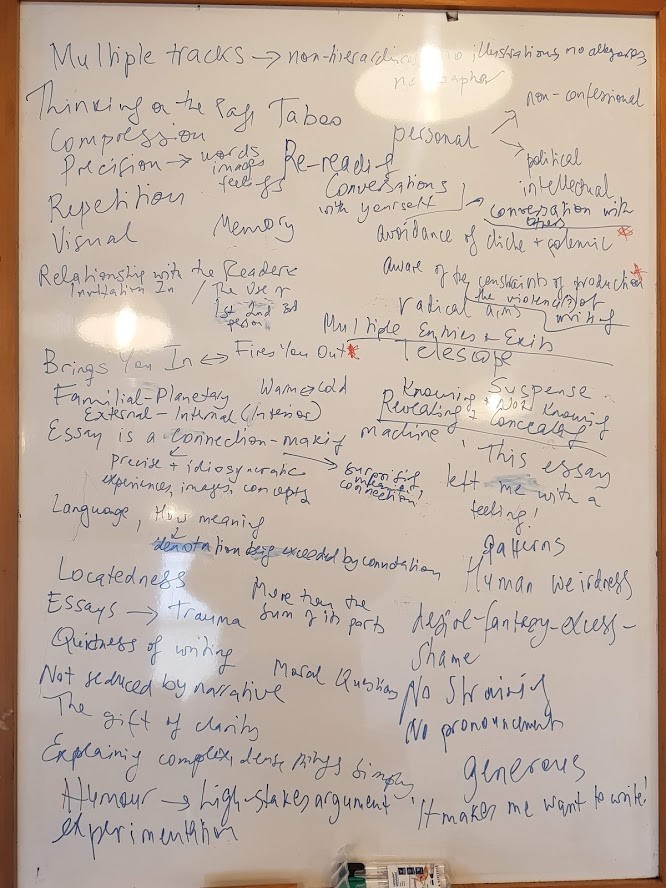 Multiple tracks → non-hierarchical, no illustrations, no allegories,
no metaphor
Thinking on the Page Taboo
Compression
Precision → words
images
feelings
Re-reading
personal
non-confessional
political
intellectual
Repetition
Visual
Memory
Conversations
with yourself
conversation with
others
avoidance of cliche + polemic *
Relationship with the Reader
Invitation In / The Use of
1st 2nd 3rd
person
aware of the constraints of production *
the violence(s) of
writing
radical aims
Multiple Entries + Exits
Telescope
Brings You In ↔ Fires You Out *
Familial-Planetary Warm → cold
External - Internal (Interior)
Suspense
Knowing + Not Knowing
Revealing + Concealing
Essay is a connection-making machine
precise + idiosyncratic
experiences, images, concepts
→ surprising,
connection
'This essay
left me with a
feeling!
Language, How meaning
denotation being exceeded by connotation
patterns
Human weirdness
Locatedness
Essays → Trauma
More than the
sum of its parts
desire-fantasy-excess-
shame
Quietness of writing
Not seduced by narrative
Moral Question
No Straining
No pronouncement
The gift of clarity
Explaining complex, dense things simply
generous
Humour → high-stakes argument
experimentation
'It makes me want to write!'